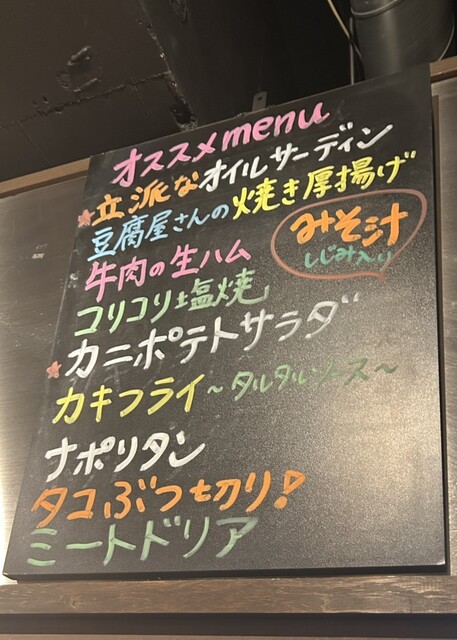 オススメmenu
立派なオイルサーディン
豆腐屋さんの焼き厚揚げ
みそ汁
しじみ入り
牛肉の生ハム
コリコリ塩焼
カニポテトサラダ
カキフライ～タルタルソース～
ナポリタン
タコぶつ切り!
ミートドリア